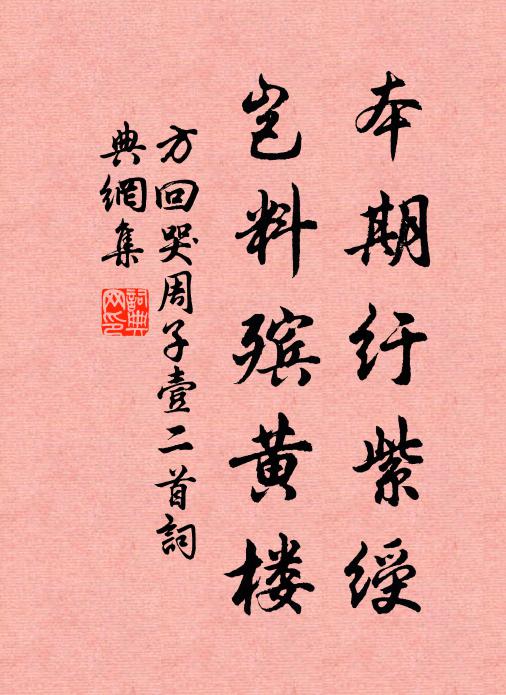 本期纡紫绶
岂料殡黄楼
方回哭周子壹二首詞
典網集
詞典网印